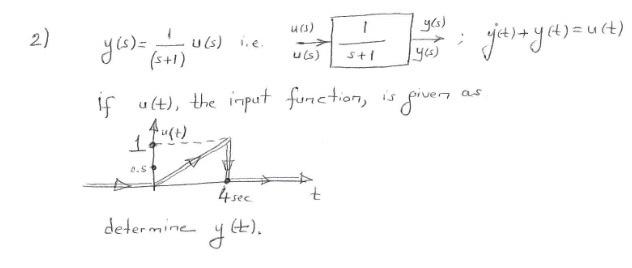 2) y(s) = 1/(s+1) u(s) i.e. u(s) u(s) 1/s+1 y(s) y(s) ; ẏ(t) + y(t) = u(t)
if u(t), the input function, is given as
u(t)
1
0.5
4 sec t
determine y(t).